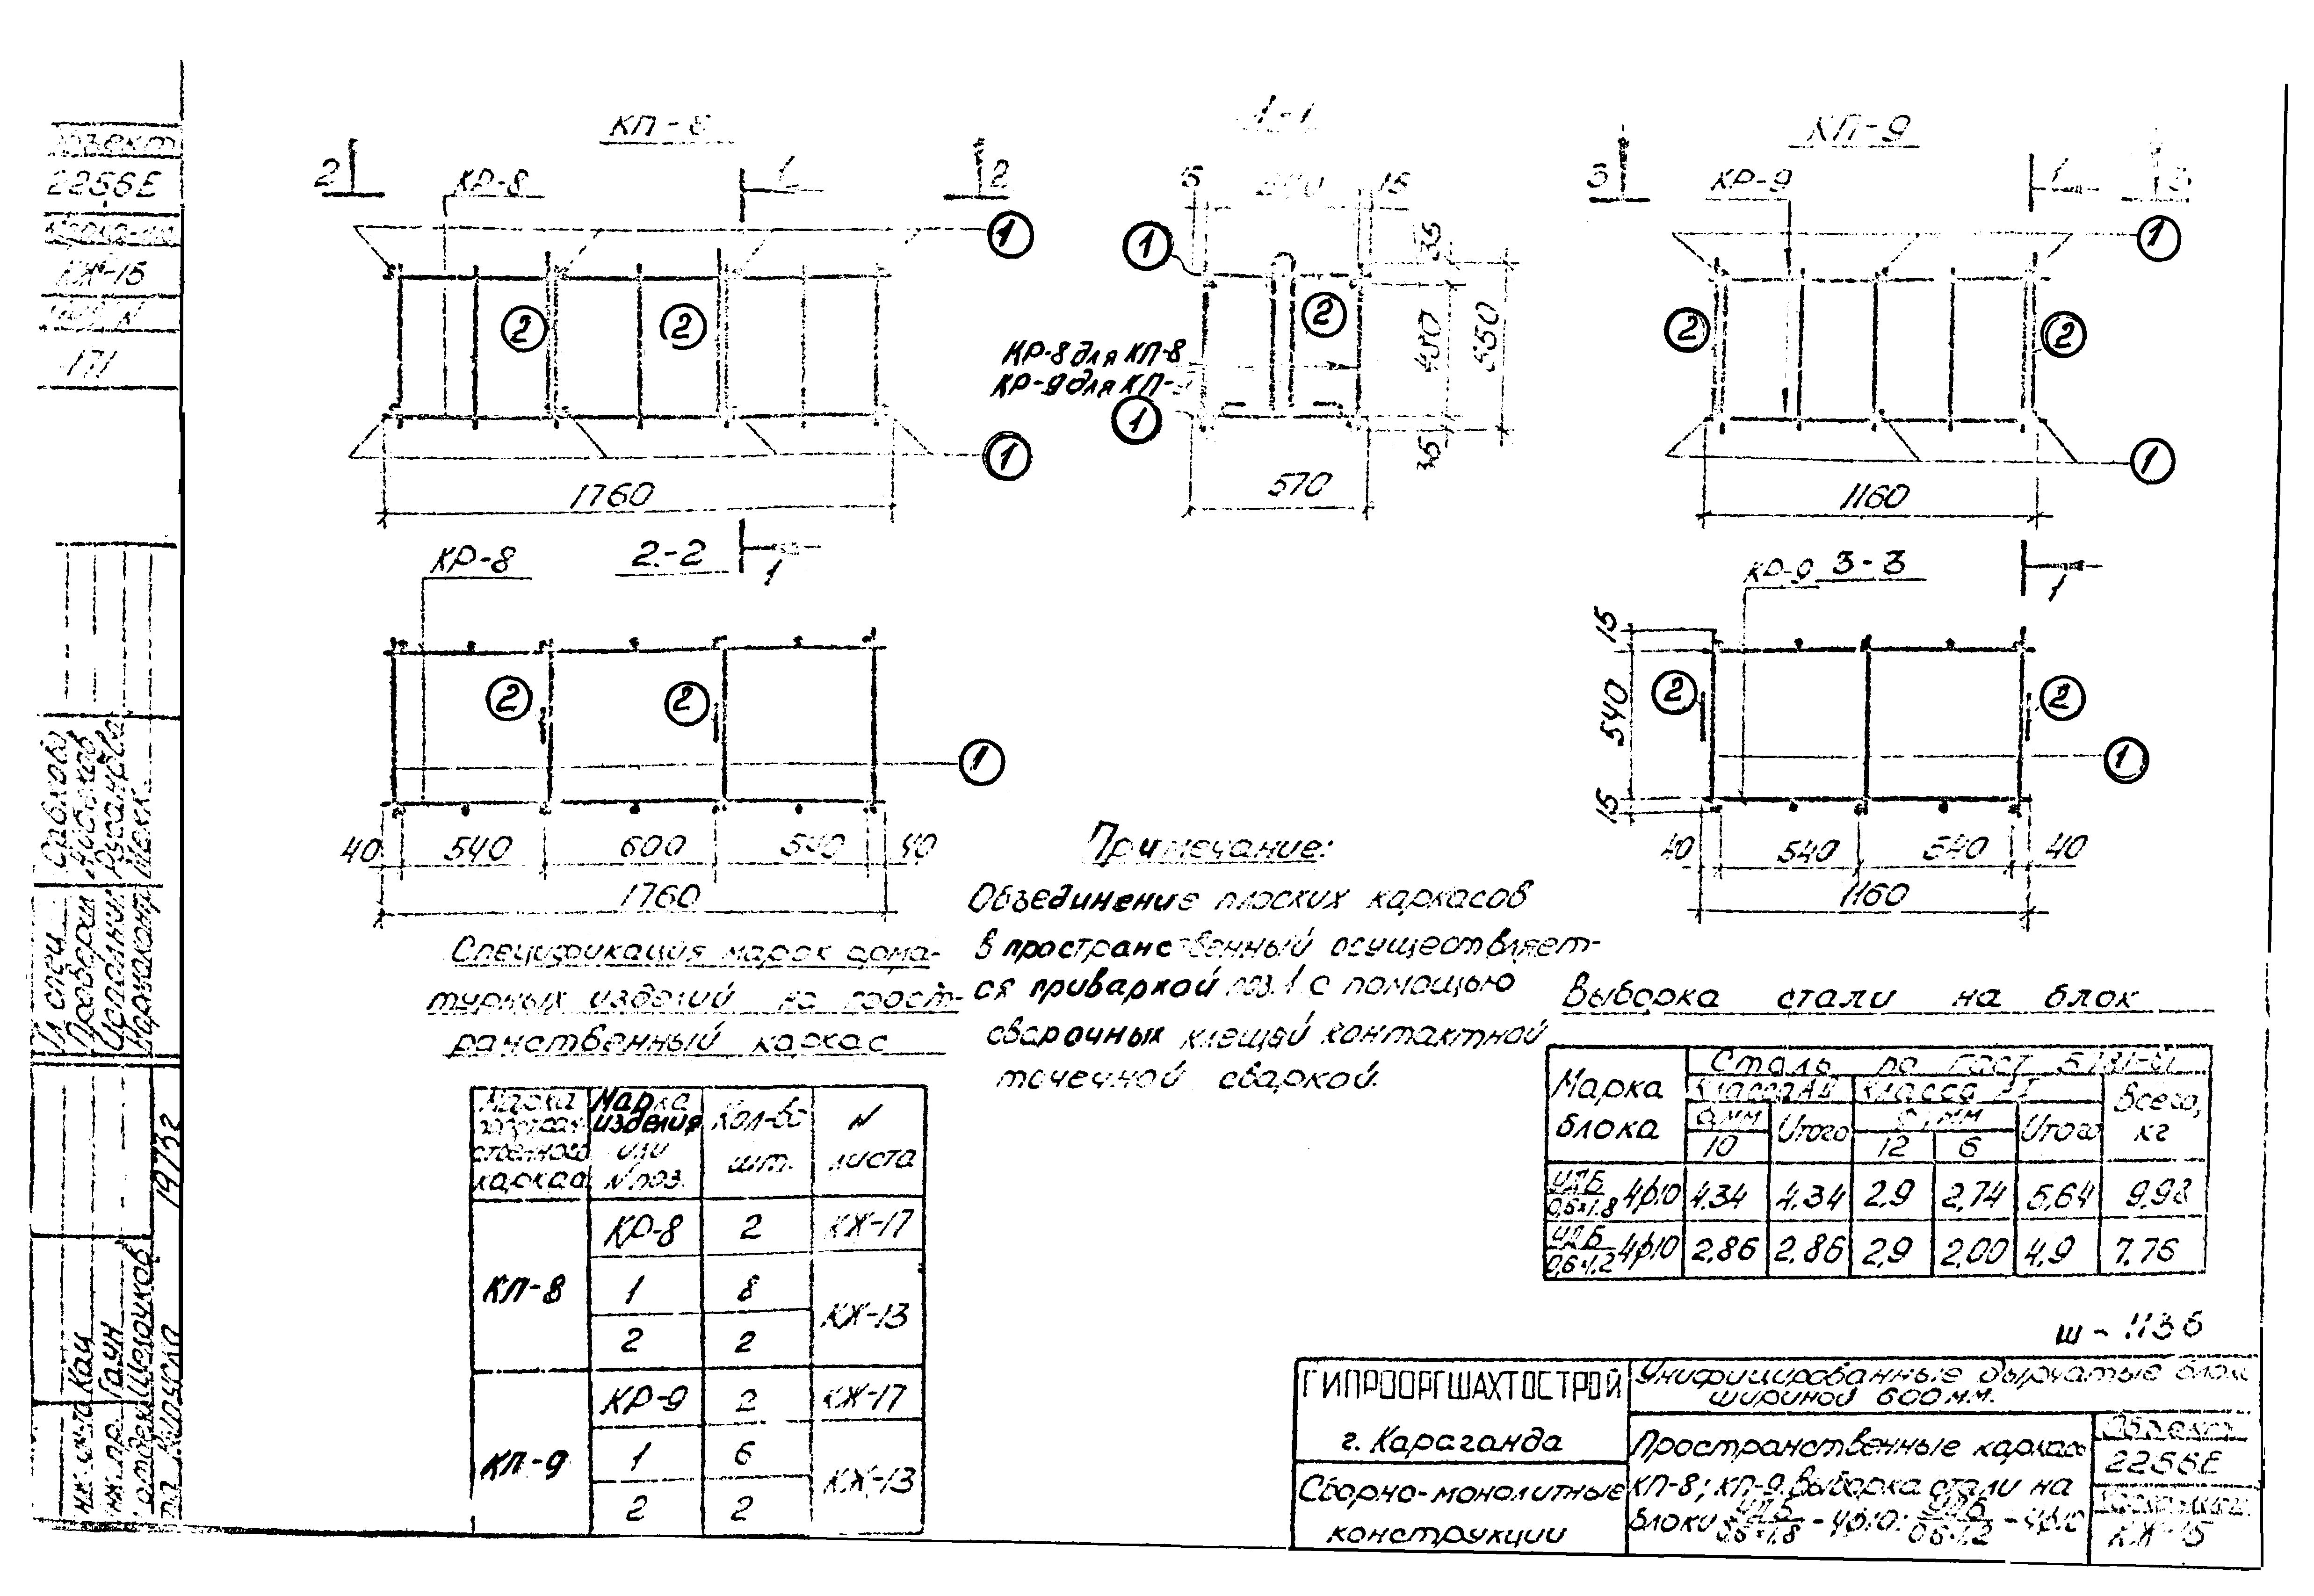 КП-8
2
КР-8
1
2
1
2
2
1
1760
1-1
15
15
1
2
35
480
550
35
КР-8 для КП-8
КР-9 для КП-
1
570
КП-9
3
КР-9
1
3
1
2
2
1
1160
КР-8
2-2
1
2
2
1
40
540
600
540
40
1760
КР-9
3-3
1
15
540
15
2
2
1
40
540
540
40
1160
Примечание:
Объединение плоских каркасов
в пространственный осуществляет-
ся приваркой поз.1 с помощью
сварочных клещей контактной
точечной сваркой.
Спецификация марок арма-
турных изделий на прост-
ранственный каркас
Марка
простран
ственного
каркаса
Марка
изделия
или
N поз.
Кол-во
шт.
N
листа
КП-8
КР-8
2
КЖ-17
1
8
КЖ-13
2
2
КП-9
КР-9
2
КЖ-17
1
6
КЖ-13
2
2
Выборка стали на блок
Марка
блока
Сталь по ГОСТ
Класса
Класса
Всего,
кг
мм
Итого
мм
Итого
10
12
6
УДБ
0,6×1,8
4ф10
4.34
4.34
2.9
2,74
5,64
9,98
УДБ
0,6×1,2
4ф10
2,86
2,86
2,9
2,00
4,9
7,76
Ш-1136
ГИПРООРГШАХТОСТРОЙ
г. Караганда
Сборно-монолитные
конструкции
Унифицированные дырчатые блоки
шириной 600 мм.
Пространственные каркасы
КП-8; КП-9. Выборка стали на
блоки УДБ/0,6×1,8 - 4ф10; УДБ/0,6×1,2 - 4ф10
Объект
2256Е
Марка-лист
КЖ-15
Объект
2256Е
Марка-лист
КЖ-15
Инв N
171
Гл спец
Проверил
Исполнил
Нормоконтр
1973г
Кац
Гаун
Щелочков